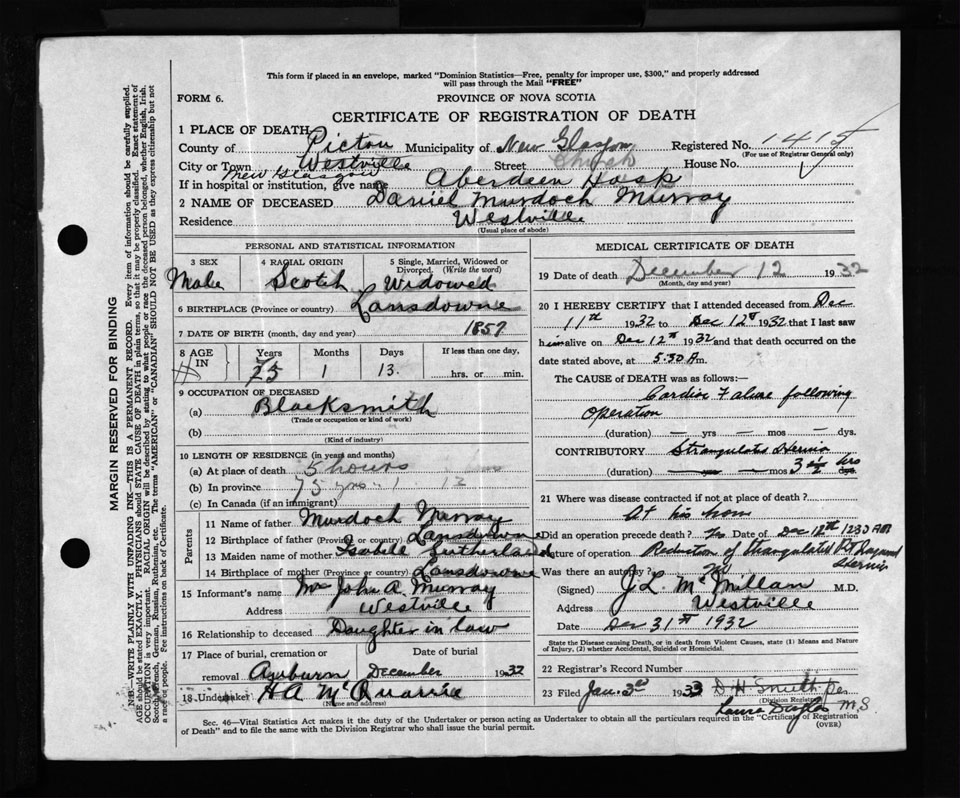 This form if placed in an envelope, marked "Dominion Statistics—Free, penalty for improper use, $300," and properly addressed
will pass through the Mail "FREE"
FORM 6.
PROVINCE OF NOVA SCOTIA
CERTIFICATE OF REGISTRATION OF DEATH
1 PLACE OF DEATH
County of Pictou Municipality of New Glasgow Registered No. 1415
(For use of Registrar General only)
City or Town Westville Street Church House No.
New Glasgow
If in hospital or institution, give name Aberdeen Hosp
2 NAME OF DECEASED Daniel Murdoch Murray
Residence Westville
(Usual place of abode)
PERSONAL AND STATISTICAL INFORMATION
3 SEX 4 RADIAL ORIGIN 5 Single, Married, Widowed or Divorced. (Write the word)
Male Scotch Widowed
6 BIRTHPLACE (Province or country) Lansdowne
7 DATE OF BIRTH (month, day and year) 1857
8 AGE IN Years Months Days If less than one day,
75 1 13. hrs. or min.
9 OCCUPATION OF DECEASED
(a) Blacksmith
(Trade or occupation or kind of work)
(b)
(Kind of industry)
10 LENGTH OF RESIDENCE (in years and months)
(a) At place of death 5 hours
(b) In province 75 yrs 1 12
(c) In Canada (if an immigrant)
Parents
11 Name of father Murdoch Murray
12 Birthplace of father (Province or country) Lansdowne
13 Maiden name of mother Isabele Sutherland
14 Birthplace of mother (Province or country) Lansdowne
15 Informant's name Mrs John A. Murray
Address Westville
16 Relationship to deceased Daughter in law
17 Place of burial, cremation or removal Date of burial
Auburn December 1932
18 Undertaker H A McQuarrie
(Name and address)
MEDICAL CERTIFICATE OF DEATH
19 Date of death December 12 1932
(Month, day and year)
20 I HEREBY CERTIFY that I attended deceased from Dec
11th 1932 to Dec 12th 1932 that I last saw
him alive on Dec 12th 1932 and that death occurred on the
date stated above, at 5.30 Am.
The CAUSE OF DEATH was as follows:—
Cardiac Failure following
Operation
(duration) — yrs — mos — dys.
CONTRIBUTORY Strangulated Hernia
(duration) mos
21 Where was disease contracted if not at place of death?
At his home
Did an operation precede death? Yes Date of Dec 12th 1230 AM
Nature of operation Reduction of Strangulated Rt Inguinal
Hernia
Was there an autopsy? No
(Signed) J. L. McMillan M.D.
Address Westville
Date Dec 31st 1932
State the Disease causing Death, or in death from Violent Causes, state (1) Means and Nature
of Injury, (2) whether Accidental, Suicidal or Homicidal.
22 Registrar's Record Number
23 Filed Jan 3rd 1933 D H Smith Per
(Division Registrar)
M.S.
Sec. 46—Vital Statistics Act makes it the duty of the Undertaker or person acting as Undertaker to obtain all the particulars required in the "Certificate of Registration
of Death" and to file the same with the Division Registrar who shall issue the burial permit.
(OVER)
MARGIN RESERVED FOR BINDING
N.B.—WRITE PLAINLY WITH UNFADING INK—THIS IS A PERMANENT RECORD. Every item of information should be carefully supplied.
AGE should be stated EXACTLY. PHYSICIANS should STATE CAUSE OF DEATH in plain terms, so that it may be properly classified. Exact statement of
OCCUPATION is very important. RACIAL ORIGIN will be described by stating to what people or race the deceased person belonged, whether English, Irish,
Scotch, French, German, Russian, Ruthenian, etc. The terms "AMERICAN" or "CANADIAN" SHOULD NOT BE USED as they express citizenship but not
a race or people. See instructions on back of Certificate.